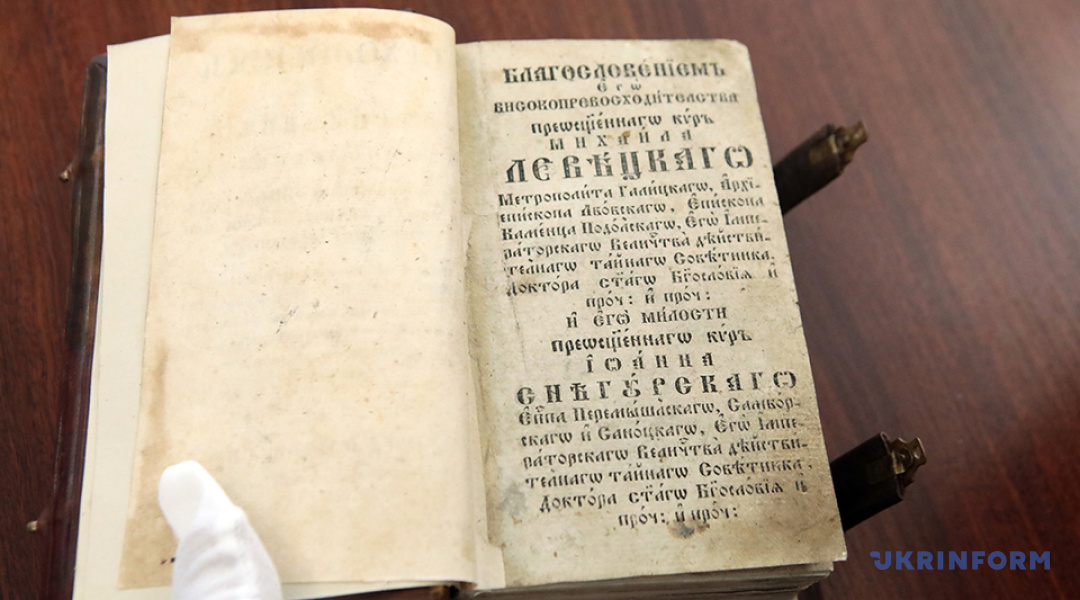 БЛАГОСЛОВЕ́НЇЕМЪ
Є҆гѡ̀
ВИСОКОПРЕВОСХОДИ́ТЕЛСТВА
преѡсщ҃е́ннагѡ кѵ́ръ
МИХАИ́ЛА
ЛЕВѢ́ЦКАГѠ
Метрополи́та Гали́цкагѡ, А҆рхї-
епи́скопа Лво́вскагѡ, Є҆пи́скопа
Ка́менца Подо́лскагѡ, Є҆гѡ̀ І҆мпе-
ра́торскагѡ Вели́чⷭ҇тва дѣйстви́-
телнагѡ та́йнагѡ Совѣ́тника,
До́кто́ра ст҃а́гѡ Бг҃осло́вїѧ и҆
про́ч: и҆ про́ч:
И҆ є҆гѡ̀ ми́лости
преѡсщ҃е́ннагѡ кѵ́ръ
І҆ѠА́ННА
СНѢГꙊ́РСКАГѠ
Є҆п҃па Перемы́шлскагѡ, Самбо́р-
скагѡ и҆ Сано́цкагѡ, Є҆гѡ̀ І҆мпе-
ра́торскагѡ Вели́чⷭ҇тва дѣйстви́-
телнагѡ та́йнагѡ Совѣ́тника,
До́кто́ра ст҃а́гѡ Бг҃осло́вїѧ и҆
про́ч: и҆ про́ч:
UKRINFORM